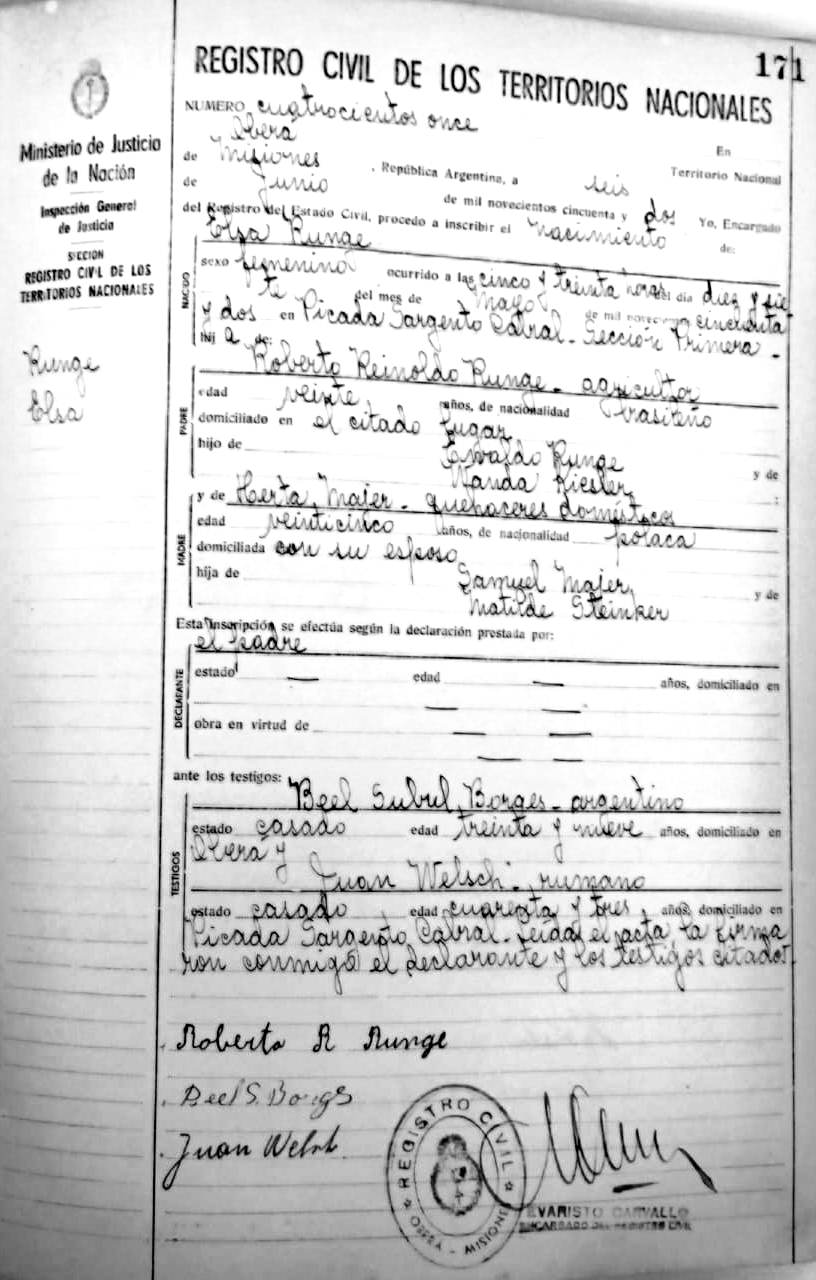 171
REGISTRO CIVIL DE LOS TERRITORIOS NACIONALES
Ministerio de Justicia
de la Nación
Inspección General
de Justicia
SECCION
REGISTRO CIVIL DE LOS
TERRITORIOS NACIONALES
Runge
Elsa
NUMERO cuatrocientos once
En
Oberá
Territorio Nacional
de Misiones, República Argentina, a seis
de Junio de mil novecientos cincuenta y dos Yo, Encargado
del Registro del Estado Civil, procedo a inscribir el nacimiento de:
NACIDO
Elsa Runge
sexo femenino ocurrido a las cinco y treinta horas del día diez y sie
te del mes de Mayo de mil novecientos cincuenta
y dos en Picada Sargento Cabral - Sección Primera -
hij a de:
PADRE
Roberto Reinoldo Runge - agricultor
edad veinte años, de nacionalidad brasileño
domiciliado en el citado lugar
hijo de Osvaldo Runge y de
Wanda Kiesler :
MADRE
y de Herta Majer - quehaceres domésticos
edad veinticinco años, de nacionalidad polaca
domiciliada con su esposo
hija de Samuel Majer y de
Matilde Steinker
Esta inscripción se efectúa según la declaración prestada por:
DECLARANTE
el padre
estado — edad — años, domiciliado en
— —
obra en virtud de — —
— —
ante los testigos:
TESTIGOS
Beel Subul Borges - argentino
estado casado edad treinta y nueve años, domiciliado en
Oberá y
Juan Welsch - rumano
estado casado edad cuarenta y tres años, domiciliado en
Picada Sargento Cabral - leída el acta la firma
ron conmigo el declarante y los testigos citados.
Roberto R Runge
Beel S. Borges
Juan Welsch
REGISTRO CIVIL
OBERA - MISIONES
EVARISTO CARVALLO
ENCARGADO DEL REGISTRO CIVIL